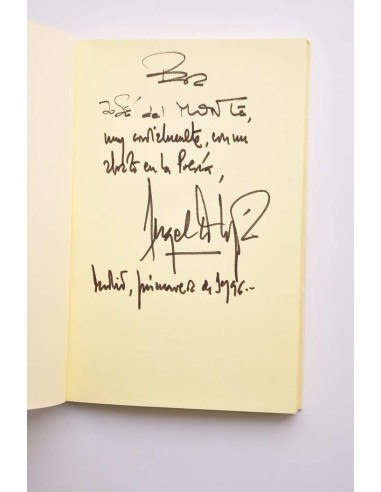 Para
José del MONTE,
muy cordialmente, con un
abrazo en la Poesía,
Angel
Madrid, primavera de 1996.-